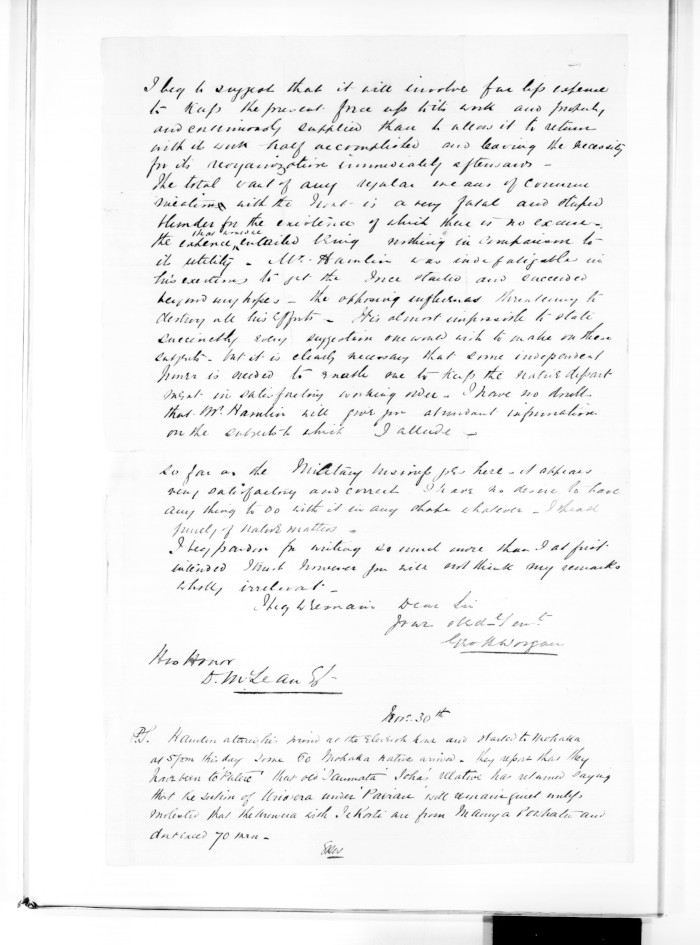 I beg to suggest that it will involve far less expense
to keep the present force up to its work and properly
and continuously supplied than to allow it to return
with its work half accomplished and leaving the necessity
for its reorganization immediately afterwards -
The total want of any regular means of commu
nication with the front is a very fatal and stupid
blunder for the existence of which there is no excuse -
the expense entailed being nothing in comparison to
its utility - Mr. Hamlin was indefatigable in
his exertions to get the force started and succeeded
beyond my hopes - the opposing influences threatening to
destroy all his efforts - It is almost impossible to state
succinctly every suggestion one would wish to make on these
subjects - but it is clearly necessary that some independent
power is needed to enable me to keep the native depart
ment in satisfactory working order - I have no doubt
that Mr. Hamlin will give you abundant information
on the subjects to which I allude -
So far as the Military business goes here - it appears
very satisfactory and correct I have no desire to have
any thing to do with it in any shape whatever - I speak
purely of native matters -
I beg pardon for writing so much more than I at first
intended I trust however you will not think my remarks
wholly irrelevant -
I beg to remain Dear Sir
Your obdt. Servt.
Geo H Worgan
His Honor
D. McLean Esq.
Nov. 30th
P.S. Hamlin altered his mind at the eleventh hour and started to Mohaka
at 5 pm this day some 60 Mohaka natives arrived - they report that they
have been to Putere that old Taumata relative has returned saying
that the section of under will remain quiet unless
molested that the with Te Kooti are from and
do not exceed 70 men -